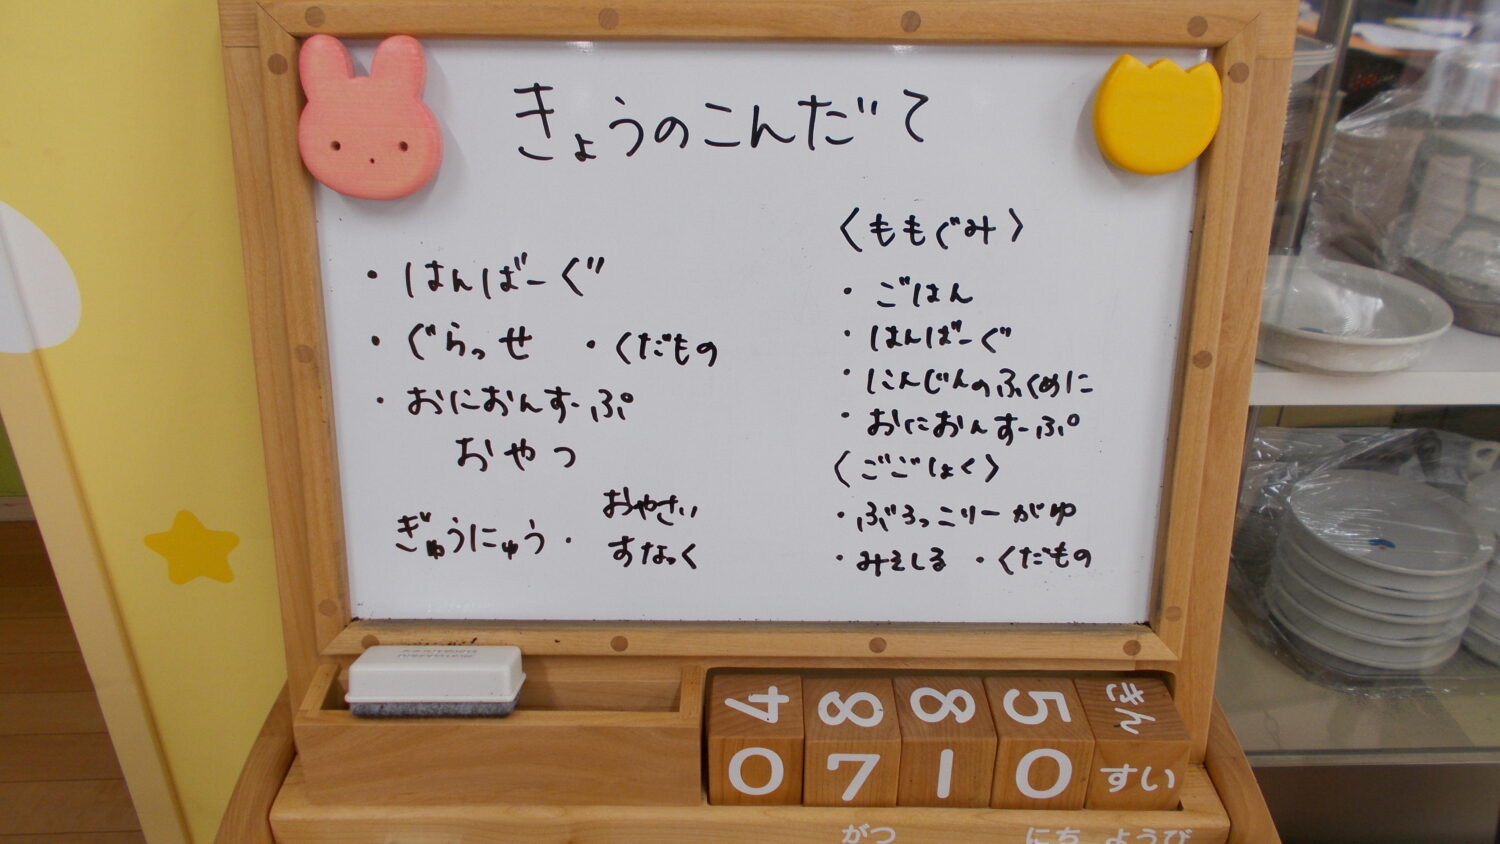 きょうのこんだて
・はんばーぐ
・ぐらっせ ・くだもの
・おにおんすーぷ
おやつ
ぎゅうにゅう・おやさい
すなっく
〈ももぐみ〉
・ごはん
・はんばーぐ
・にんじんのふくめに
・おにおんすーぷ
〈ごごしょく〉
・ぶろっこりーがゆ
・みそしる ・くだもの
4 8 8 5 きん
0 7 1 0 すい
がつ にち ようび